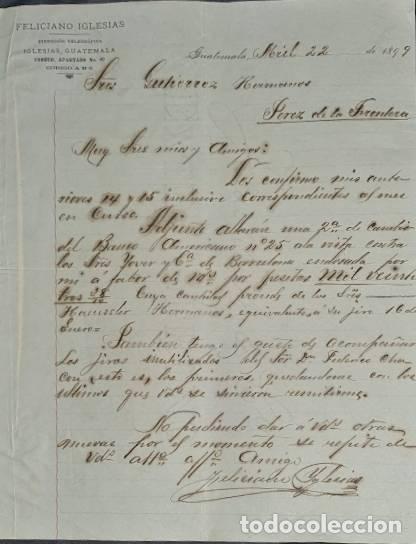 FELICIANO IGLESIAS
DIRECCIÓN TELEGRÁFICA
IGLESIAS, GUATEMALA
CORREO, APARTADO No. 40
CÓDIGO A B C
Guatemala, Abril 22 de 1899
Sres Gutierrez Hermanos
Jerez de la Frontera
Muy Sres mios y Amigos:
Les confirmo mis ante
riores 14 y 15 inclusive correspondientes al mes
en Curso.
Adjunto hallarán una 2a de Cambio
del Banco Americano no 25 a la vista contra
los Sres Yover y Ca de Barcelona endosada por
mi á fabor de Vds por pesetas Mil veinte
tres Cuya cantidad procede de los Sres
Hermanos, equivalente á su jiro 16 de
Enero=
También tengo el gusto de acompañar
los jiros inutilizados del Sor Dn Federico Cha
con este es, los primeros, quedandome con los
ultimos que Vds se sirvieron remitirme.
No pudiendo dar á Vds otras
nuevas por el momento se repite de
Vds affo Amigo
Feliciano Iglesias
todocoleccion.net